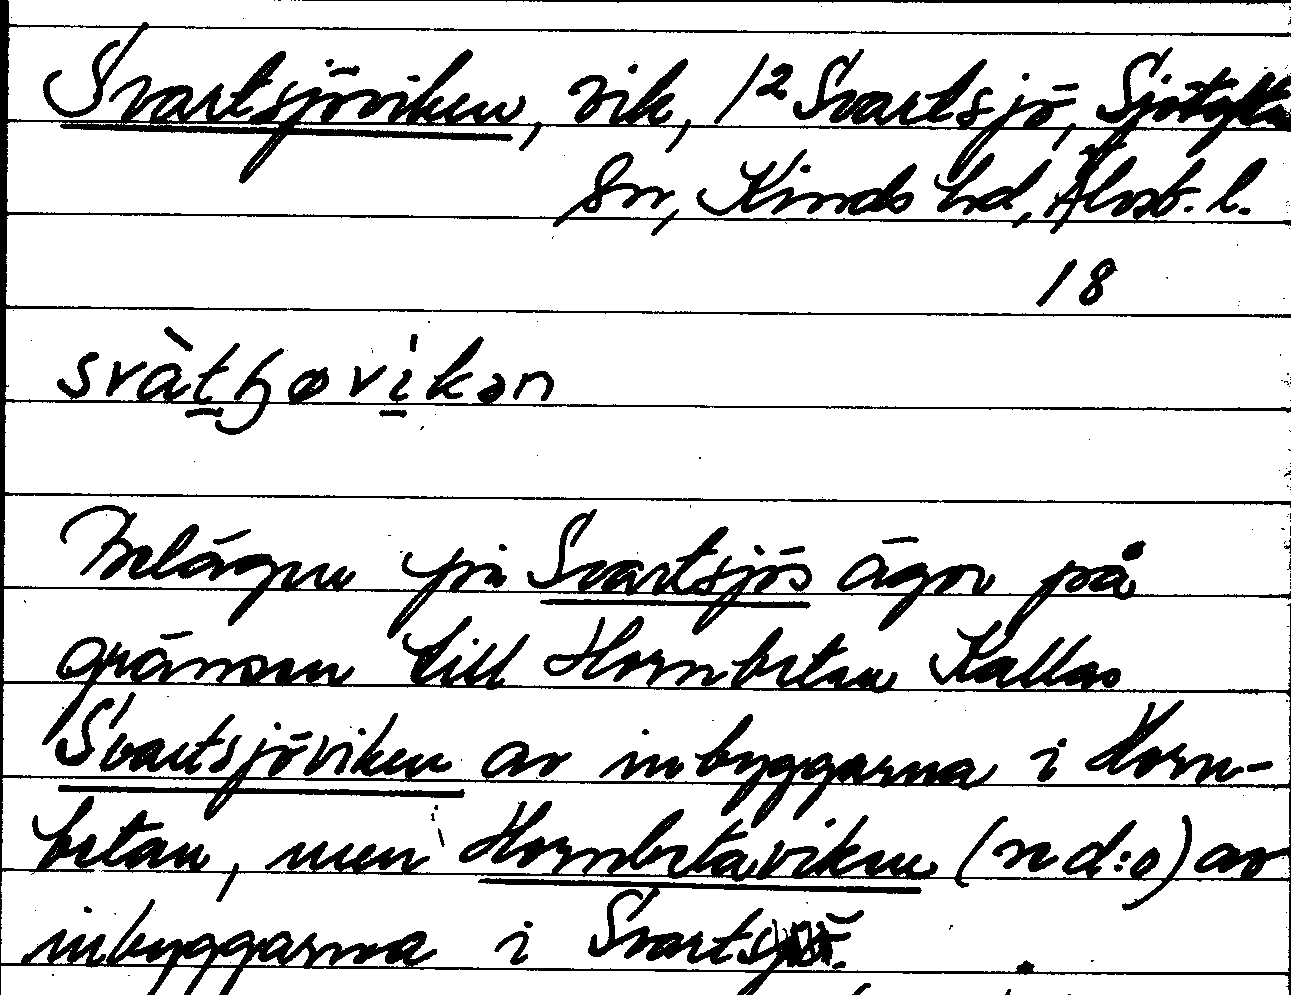 Svartsjöviken, vik, 1² Svartsjö, Sjötofta
sn, Kinds hd, Älvsb. l.
18
svàt̲ɧøvi̲kən
Belägen på Svartsjös ägor på
gränsen till Hornbetan Kallas
Svartsjöviken av inbyggarna i Horn-
betan, men Hornbetaviken (n d:o) av
inbyggarna i Svartsjö.